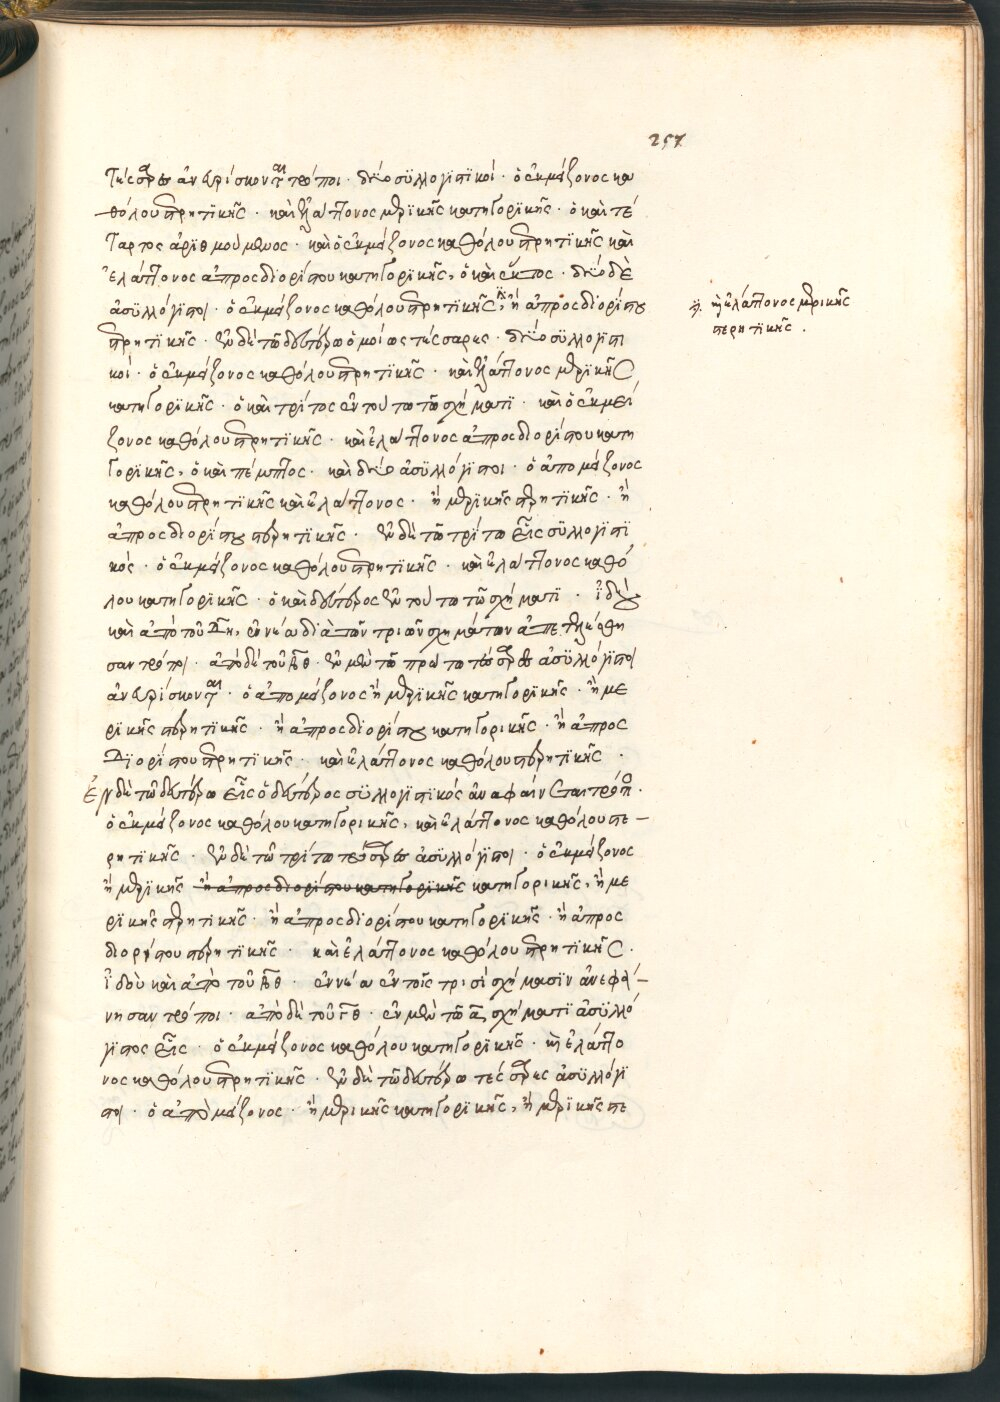 257
τέσσαρες ἀνευρίσκονται τρόποι · δύο συλλογιστικοί · ὁ ἐκ μείζονος κα
θόλου στερητικῆς · καὶ ἐλάττονος μερικῆς κατηγορικῆς · ὁ καὶ τέ
ταρτος ἀριθμούμενος · καὶ ὁ ἐκ μείζονος καθόλου στερητικῆς καὶ
ἐλάττονος ἀπροσδιορίστου κατηγορικῆς, ὁ καὶ ἕκτος · δύο δὲ
ἀσυλλόγιστοι · ὁ ἐκ μείζονος καθόλου στερητικῆς, ἢ ἀπροσδιορίστου
ἢ. καὶ ἐλάττονος μερικῆς
στερητικῆς .
στερητικῆς · ἐν δὲ τῶ δευτέρω ὁμοίως τέσσαρες · δύο συλλογιστι
κοί · ὁ ἐκ μείζονος καθόλου στερητικῆς · καὶ ἐλάττονος μερικῆς
κατηγορικῆς · ὁ καὶ τρίτος ἐν τούτω τῶ σχήματι · καὶ ὁ ἐκ μεί
ζονος καθόλου στερητικῆς · καὶ ἐλάττονος ἀπροσδιορίστου κατη
γορικῆς, ὁ καὶ πέμπτος · καὶ δύο ἀσυλλόγιστοι · ὁ ἀπὸ μείζονος
καθόλου στερητικῆς καὶ ἐλάττονος · ἢ μερικῆς στερητικῆς · ἢ
ἀπροσδιορίστου στερητικῆς · ἐν δὲ τῶ τρίτω εἷς συλλογιστι
κός · ὁ ἐκ μείζονος καθόλου στερητικῆς · καὶ ἐλάττονος καθό
λου κατηγορικῆς · ὁ καὶ δεύτερος ἐν τούτω τῶ σχήματι · ἰδοὺ
καὶ ἀπὸ τοῦ ἐννέα διὰ τῶν τριῶν σχημάτων ἀπετελέσθη
σαν τρόποι · ἀπὸ δὲ τοῦ · ἐν μὲν τῶ πρώτω τέσσαρες ἀσυλλόγιστοι
ἀνευρίσκονται · ὁ ἀπὸ μείζονος ἢ μερικῆς κατηγορικῆς · ἢ με
ρικῆς στερητικῆς · ἢ ἀπροσδιορίστου κατηγορικῆς · ἢ ἀπροσ
διορίστου στερητικῆς · καὶ ἐλάττονος καθόλου στερητικῆς ·
ἐν δὲ τῶ δευτέρω εἷς ὁ δεύτερος συλλογιστικός ἀναφαίνεται τρόπος ·
ὁ ἐκ μείζονος καθόλου κατηγορικῆς, καὶ ἐλάττονος καθόλου στε–
ρητικῆς · ἐν δὲ τῶ τρίτω τέσσαρες ἀσυλλόγιστοι · ὁ ἐκ μείζονος
ἢ μερικῆς ἢ ἀπροσδιορίστου κατηγορικῆς κατηγορικῆς, ἢ με
ρικῆς στερητικῆς · ἢ ἀπροσδιορίστου κατηγορικῆς · ἢ ἀπροσ
διορίστου στερητικῆς · καὶ ἐλάττονος καθόλου στερητικῆς ·
ἰδοὺ καὶ ἀπὸ τοῦ · ἐννέα ἐν τοῖς τρισὶ σχήμασιν ἀνεφά–
νησαν τρόποι · ἀπὸ δὲ τοῦ · ἐν μὲν τῶ α σχήματι ἀσυλλό
γιστος εἷς · ὁ ἐκ μείζονος καθόλου κατηγορικῆς · καὶ ἐλάττο
νος καθόλου στερητικῆς · ἐν δὲ τῶ δευτέρω τέσσαρες ἀσυλλόγι
στοι · ὁ ἀπὸ μείζονος · ἢ μερικῆς κατηγορικῆς, ἢ μερικῆς στε